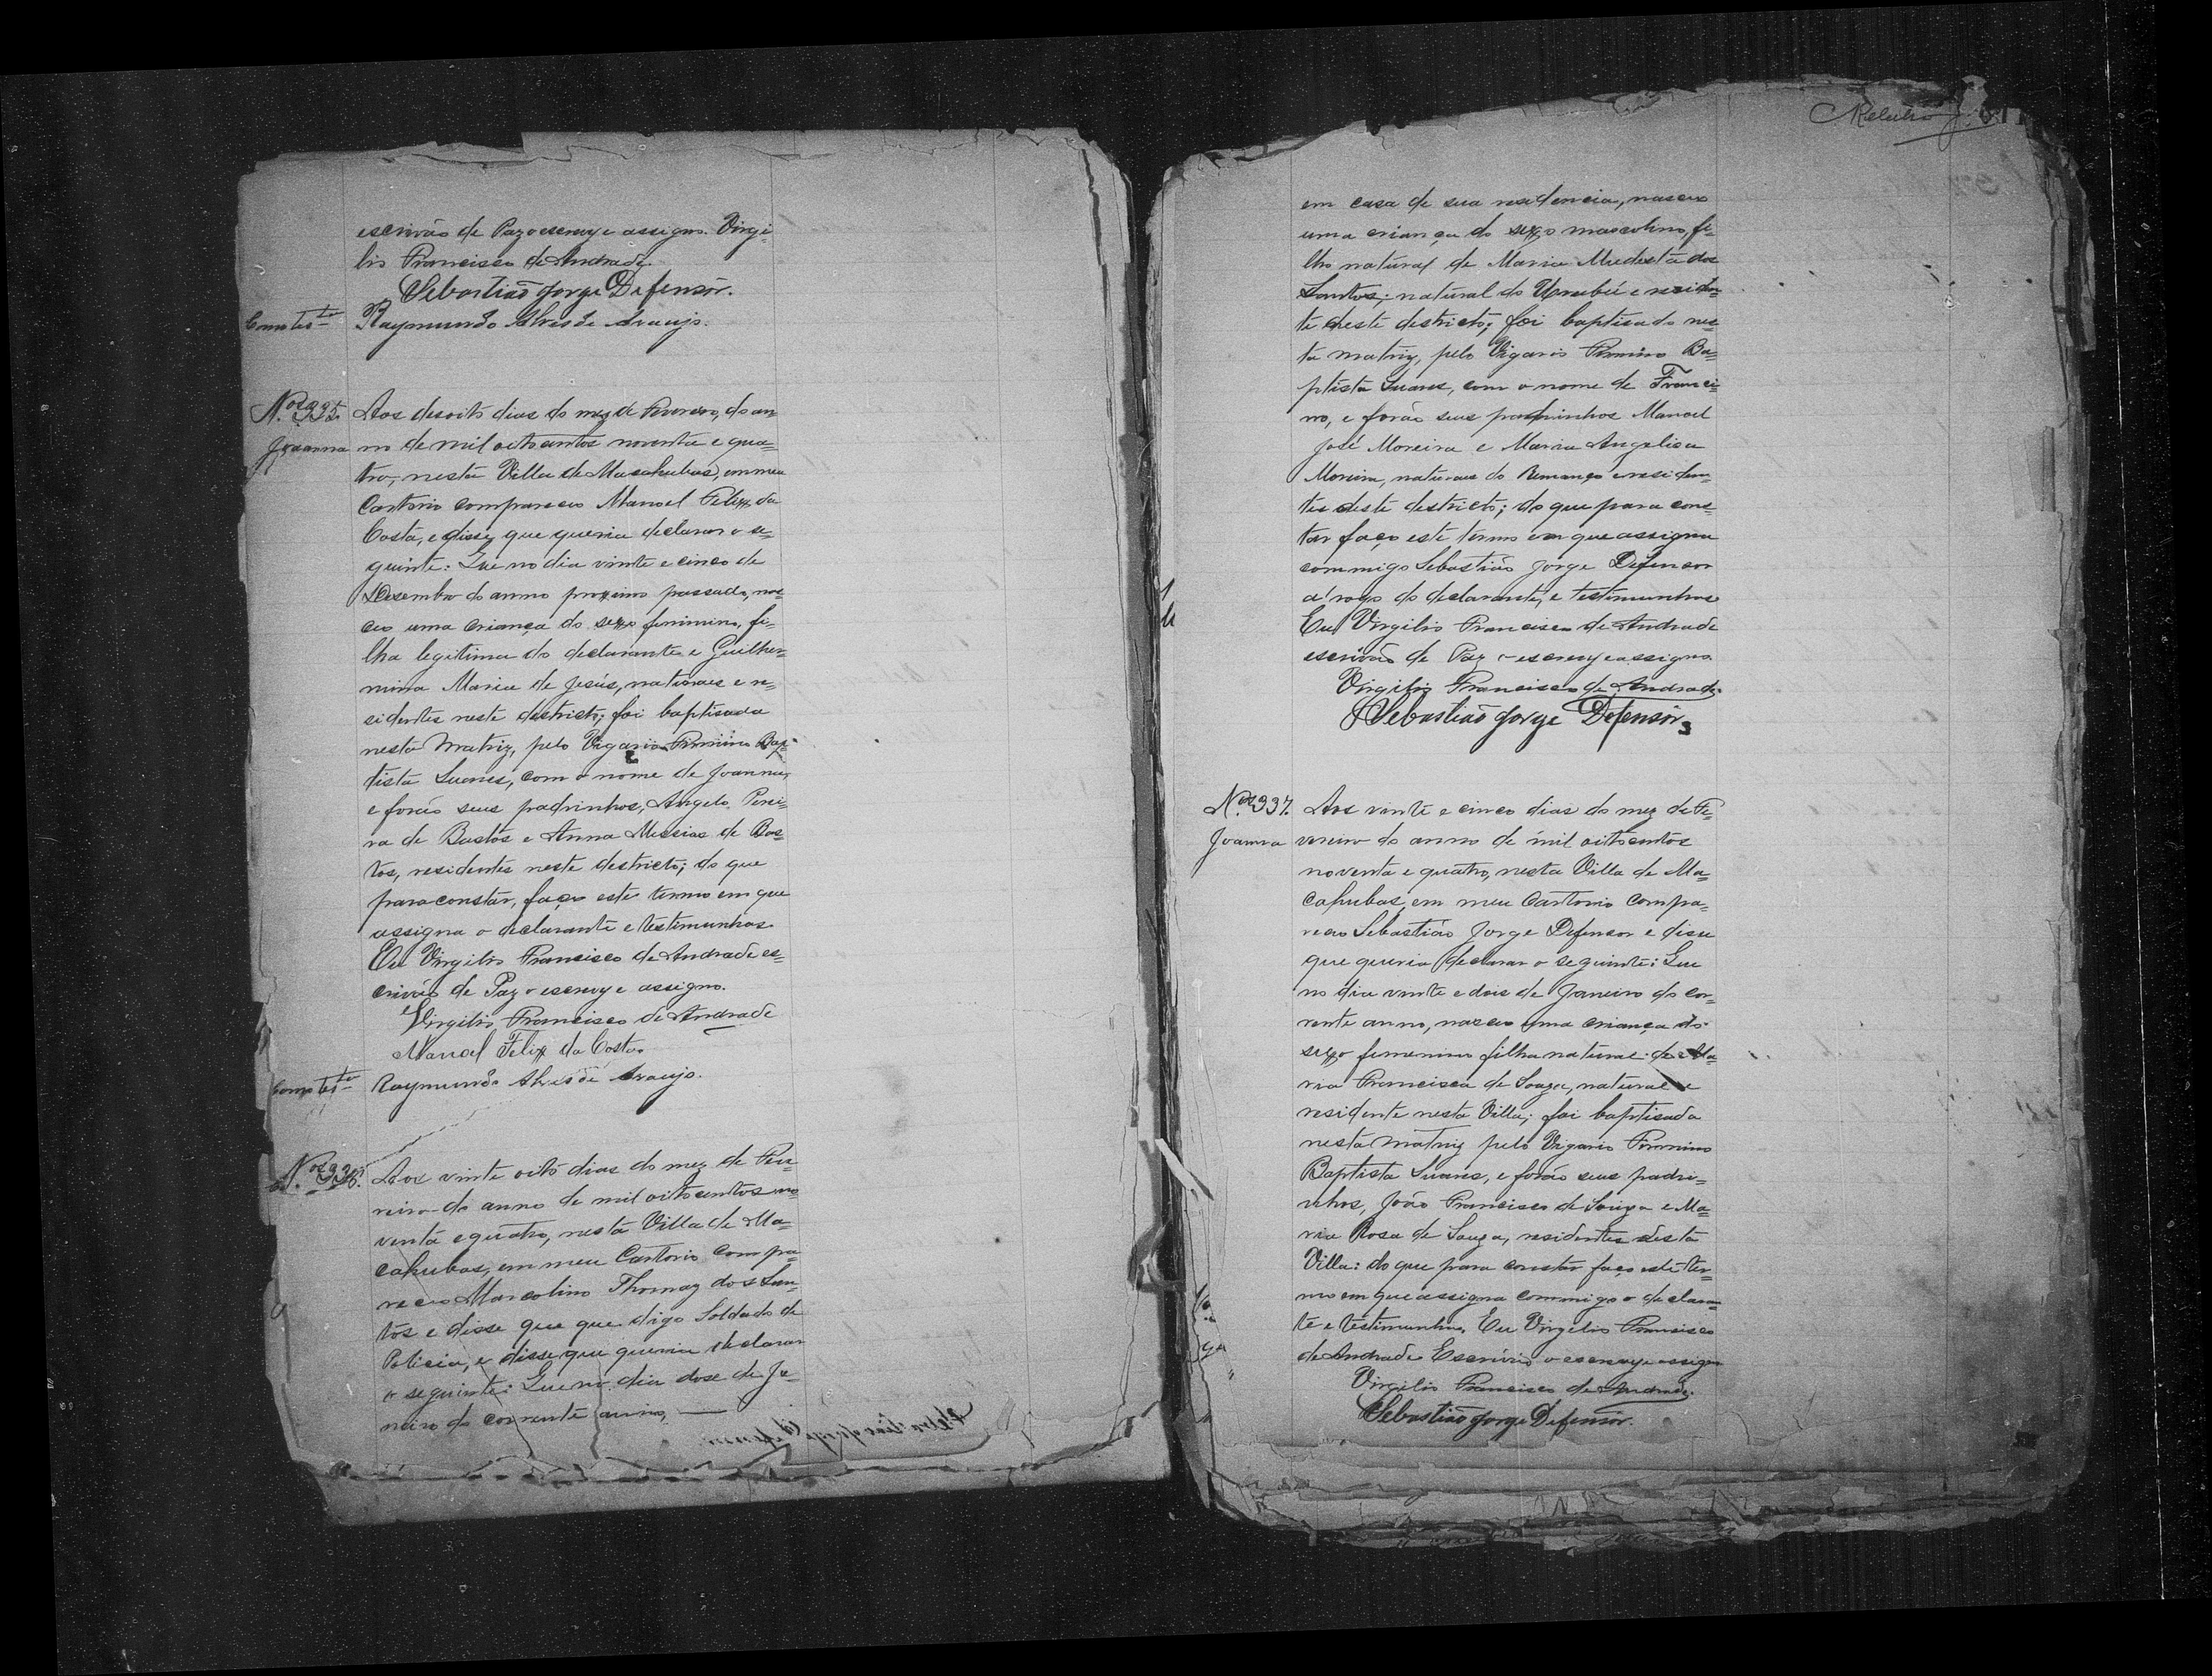 escrivão de Paz o escrevy e assigno. Virgi=
lio Francisco de Andrade.
Sebastião Jorge Defensôr.
Como testª Raymundo Alves de Araujo.
Nº 335. Aos desoito dias do mez de Fevereiro, do an
Joanna no de mil oitocentos noventa e qua=
tro, nesta Villa de Macahubas, em meu
Cartorio compareceo Manoel Felix da
Costa, e disse que queria declarar o se=
guinte: Que no dia vinte e cinco de
Desembro do anno proximo passado, nas=
ceo uma criança do sexo feminino, fi=
lha legitima do declarante e Guilher=
mina Maria de Jesús, naturaes e re=
sidentes neste destricto; foi baptisada
nesta Matriz, pelo Vigario Firmino Bap=
tista Soares, com o nome de Joanna,
e forão seus padrinhos, Angelo Perei=
ra de Bastos e Anna Messias de Bas=
tos, residentes neste destricto; do que
para constar, faço este termo em que
assigna o declarante e testimunhas.
Eu Virgilio Francisco de Andrade es=
crivão de Paz o escrevy e assigno.
Virgilio Francisco de Andrade
Manoel Felix da Costa.
Como testª Raymundo Alves de Araujo.
Nº 336. Aos vinte oito dias do mez de Feve=
reiro do anno de mil oitocentos no=
venta e quatro, nesta Villa de Ma=
cahubas, em meu Cartorio compa=
receo Marcolino Thomaz dos San=
tos e disse que que digo Soldado de
Policia, e disse que queria declarar
o seguinte: Que no dia dose de Ja=
neiro do corrente anno,
em casa de sua residencia, nasceo
uma criança do sexo masculino, fi=
lho natural de Maria Mudesta dos
Santos; natural do Urubú e residen=
te deste destricto; foi baptisado nes=
ta matriz, pelo Vigario Firmino Ba=
ptista Suares, com o nome de Franci=
no, e forão seus padrinhos Manoel
José Moreira e Maria Angelica
Moreira, naturaes do Remanço e residen=
tes deste destricto; do que para cons=
tar faço este termo em que assigna
commigo Sebastião Jorge Defensor
a' rogo do declarante, e testimunhas
Eu Virgilio Francisco de Andrade
escrivão de Paz o escrevy e assigno.
Virgilio Francisco de Andrade.
Sebastião Jorge Defensôr
Nº 337. Aos vinte e cinco dias do mez de Fe=
Joanna vereiro do anno de mil oitocentos
noventa e quatro, nesta Villa de Ma=
cahubas, em meu Cartorio compa=
receo Sebastião Jorge Defensor e disse
que queria declarar o seguinte: Que
no dia vinte e dois de Janeiro do cor=
rente anno, nasceo uma criança do
sexo femenino filha natural de Ma=
ria Francisca de Souza, natural e
residente nesta Villa; foi baptisada
nesta Matriz pelo Vigario Firmino
Baptista Suares, e forão seus padri=
nhos, João Francisco de Souza e Ma=
ria Rosa de Souza, residentes desta
Villa: do que para constar faço este ter=
mo em que assigna commigo o declaran=
te e testimunha. Eu Virgilio Francisco
de Andrade Escrivão o escrevy e assigno
Virgilio Francisco de Andrade.
Sebastião Jorge Defensôr.